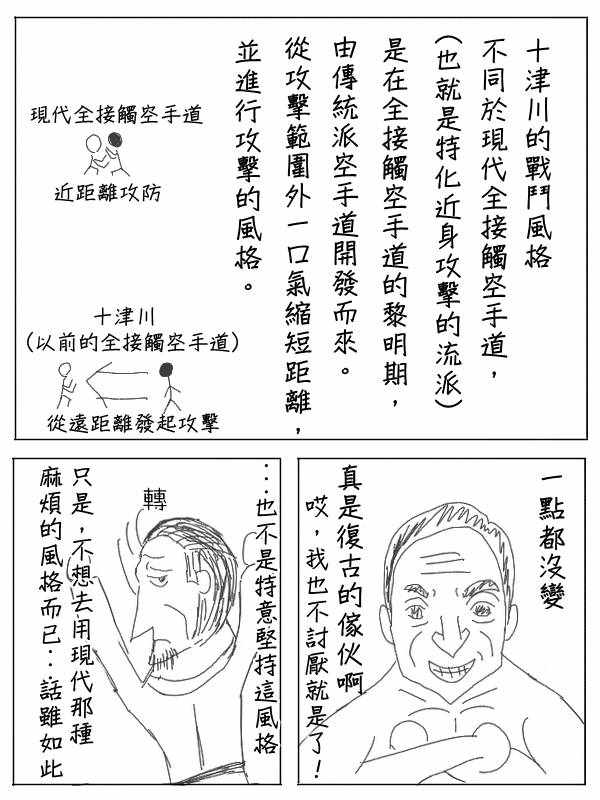 十津川的戰鬥風格
不同於現代全接觸空手道，
（也就是特化近身攻擊的流派）
是在全接觸空手道的黎明期，
由傳統派空手道開發而來。
從攻擊範圍外一口氣縮短距離，
並進行攻擊的風格。
現代全接觸空手道
近距離攻防
十津川
(以前的全接觸空手道)
從遠距離發起攻擊
一點都沒變
真是復古的傢伙啊
哎，我也不討厭就是了！
‥也不是特意堅持這風格
轉
只是，不想去用現代那種
麻煩的風格而已‥話雖如此